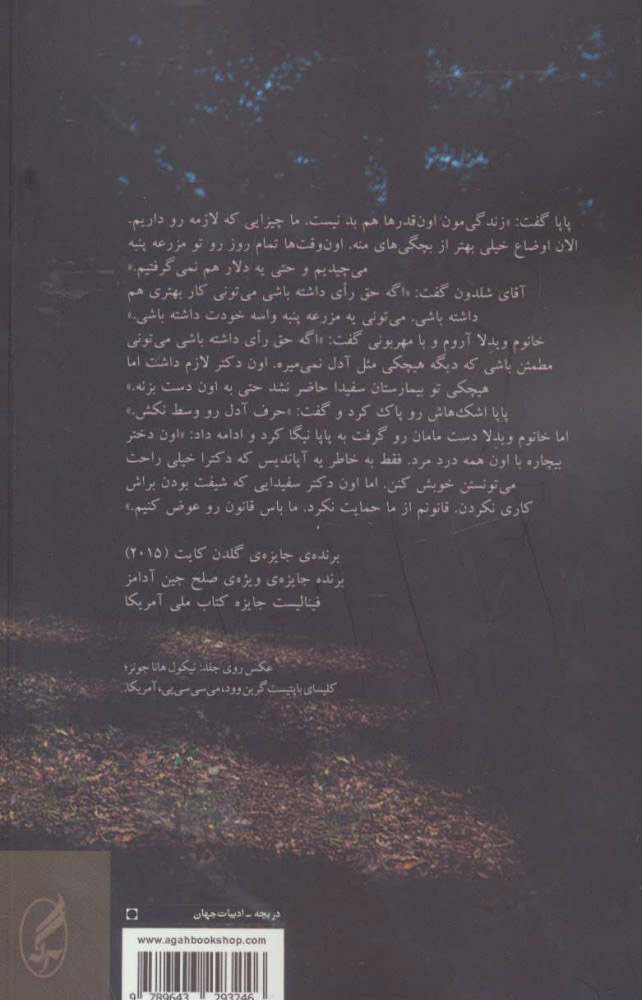 پاپا گفت: «زندگی‌مون اون‌قدرها هم بد نیست. ما چیزایی که لازمه رو داریم.
الان اوضاع خیلی بهتر از بچگی‌های منه. اون‌وقت‌ها تمام روز رو تو مزرعه پنبه
می‌چیدیم و حتی یه دلار هم نمی‌گرفتیم.»
آقای شلدون گفت: «اگه حق رأی داشته باشی می‌تونی کار بهتری هم
داشته باشی. می‌تونی یه مزرعه پنبه واسه خودت داشته باشی.»
خانوم ویدلا آروم و با مهربونی گفت: «اگه حق رأی داشته باشی می‌تونی
مطمئن باشی که دیگه هیچکی مثل آدل نمی‌میره. اون دکتر لازم داشت اما
هیچکی تو بیمارستان سفیدا حاضر نشد حتی به اون دست بزنه.»
پاپا اشک‌هاش رو پاک کرد و گفت: «حرف آدل رو وسط نکش.»
اما خانوم ویدلا دست مامان رو گرفت به پاپا نیگا کرد و ادامه داد: «اون دختر
بیچاره با اون همه درد مرد. فقط به خاطر یه آپاندیس که دکترا خیلی راحت
می‌تونستن خوبش کنن. اما اون دکتر سفیدایی که شیفت بودن براش
کاری نکردن. قانونم از ما حمایت نکرد. ما باس قانون رو عوض کنیم.»
برنده‌ی جایزه‌ی گلدن کایت (۲۰۱۵)
برنده جایزه‌ی ویژه‌ی صلح جین آدامز
فینالیست جایزه کتاب ملی آمریکا
عکس روی جلد: نیکول هانا جونز؛
کلیسای باپتیست گرین وود، می‌سی‌سی‌پی، آمریکا.
دریچه ـ ادبیات جهان
www.agahbookshop.com
9 789643 293246